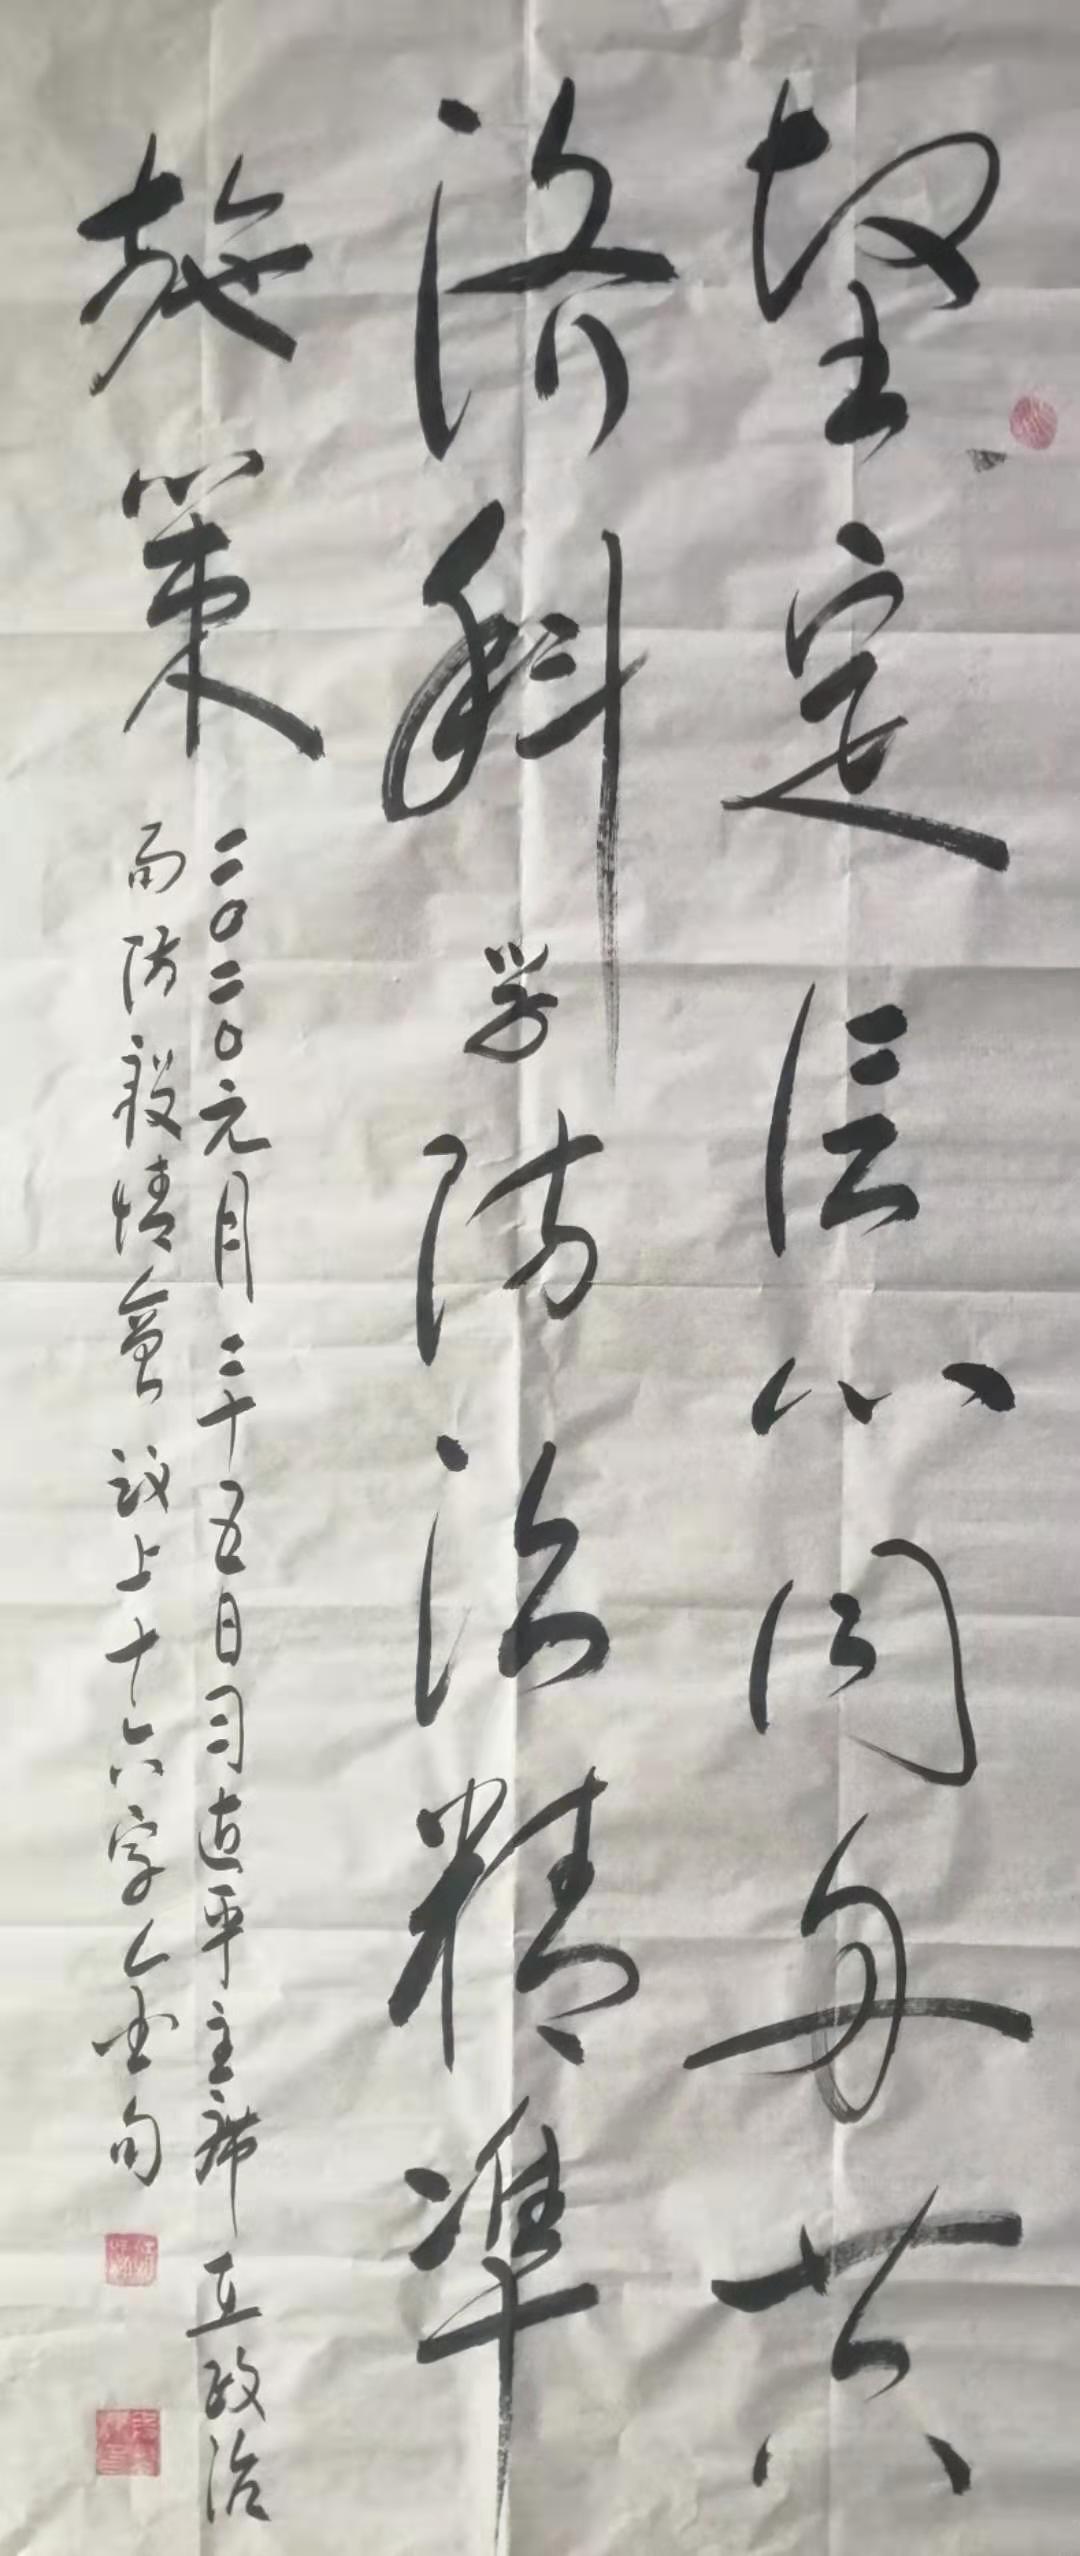 坚定信心同舟共
济科学防治精準
施策
二〇二〇元月二十五日习近平主席在政治
防疫情會议上十六字金句